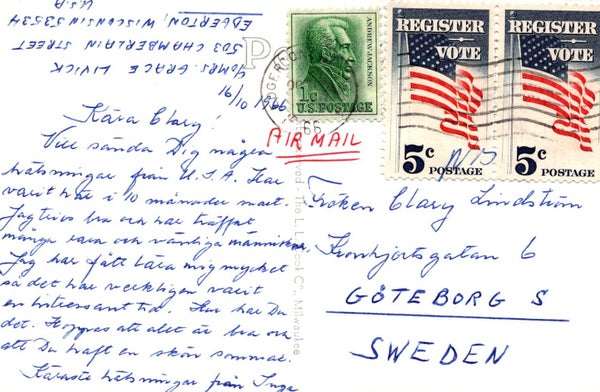 19/10 1966
℅ MRS. GRACE LIVICK
503 CHAMBERLAIN STREET
EDGERTON, WISCONSIN 53534
U.S.A
Kära Clary!
Vill sända Dig några
hälsningar från U.S.A. Har
varit här i 10 månader snart.
Jag trivs bra och har träffat
många rara och vänliga människor.
Jag har fått lära mig mycket
så det har verkligen varit
en intressant tid. Hur har Du
det. Hoppas att allt är bra och
att Du haft en skön sommar.
Käraste hälsningar från Inga
ANDREW JACKSON
1c
U.S. POSTAGE
REGISTER
VOTE
5c
POSTAGE
REGISTER
VOTE
5c
POSTAGE
AIR MAIL
Fröken Clary Lindström
Kronhjortsgatan 6
GÖTEBORG S
SWEDEN